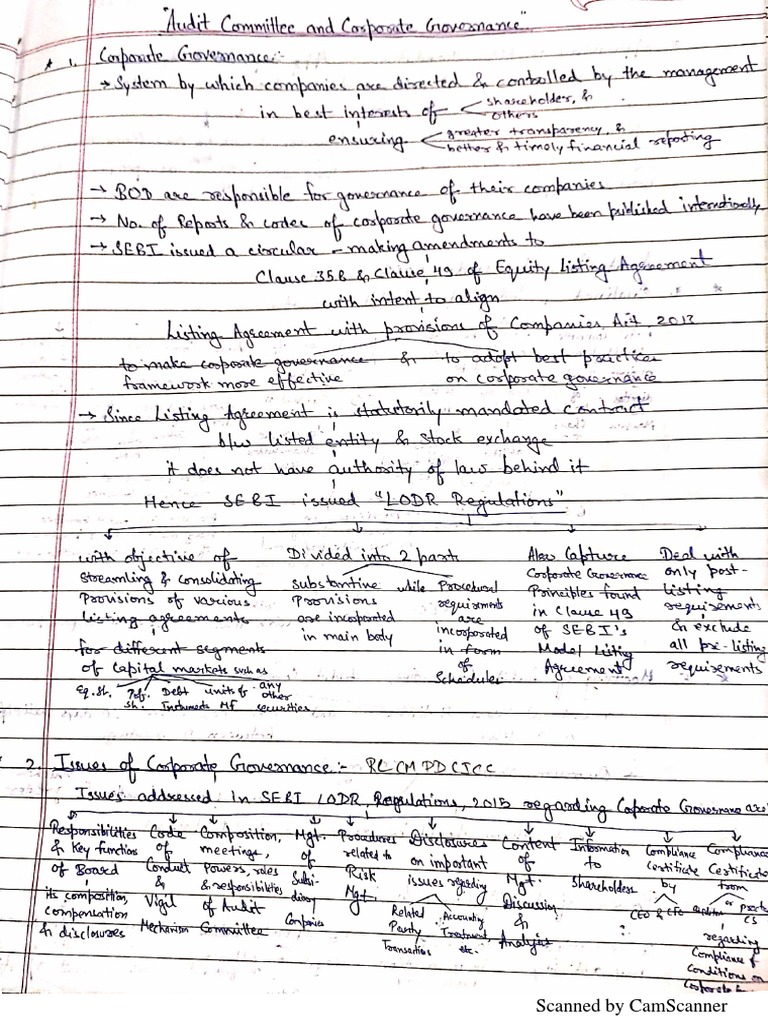 "Audit Committee and Corporate Governance"
* 1. Corporate Governance:-
→ System by which companies are directed & controlled by the management
in best interests of
shareholder, &
others
ensuring
greater transparency, &
better & timely financial reporting
→ BOD are responsible for governance of their companies
→ No. of Reports & codes of corporate governance have been published internationally
→ SEBI issued a circular - making amendments to
Clause 35B & Clause 49 of Equity Listing Agreement
with intent to align
Listing Agreement with provisions of Companies Act, 2013
to make corporate governance & to adopt best practices
framework more effective on corporate governance
→ Since Listing Agreement is statutorily mandated contract
b/w listed entity & stock exchange
it does not have authority of law behind it
Hence SEBI issued "LODR Regulations"
with objective of
Streamling & consolidating
Provisions of various
listing agreements
for different segments
of capital markets such as
Eq. Sh. Pref. Sh. Debt Instruments units of MF any other securities
Divided into 2 parts
substantive while Procedural
Provisions requirements
are incorporated are
in main body incorporated
in form
of
Schedules
Also Capture
Corporate Governance
Principles found
in Clause 49
of SEBI's
Model Listing
Agreement
Deal with
only post-
listing
requirements
& exclude
all pre-listing
requirements
2. Issues of Corporate Governance:- RCCMPDCICC
Issues addressed in SEBI LODR Regulations, 2015 regarding Corporate Governance are
Responsibilities
& Key functions
of Board
its composition,
compensation
& disclosures
Code
of
Conduct
&
Vigil
Mechanism
Composition,
meetings,
Powers, roles
& responsibilities
of Audit
Committee
Mgt.
of
Subsi-
diary
Companies
Procedures
related to
Risk
Mgt
Disclosures
on important
issues regarding
Related
Party
Transactions
Accounting
Treatment,
etc.
Content
of
Mgt.
Discussion
&
Analysis
Information
to
Shareholders
Compliance
Certificate
by
CEO & CFO
Compliance
Certificate
from
or
CS
regarding
Compliance of
Conditions on
Corporate